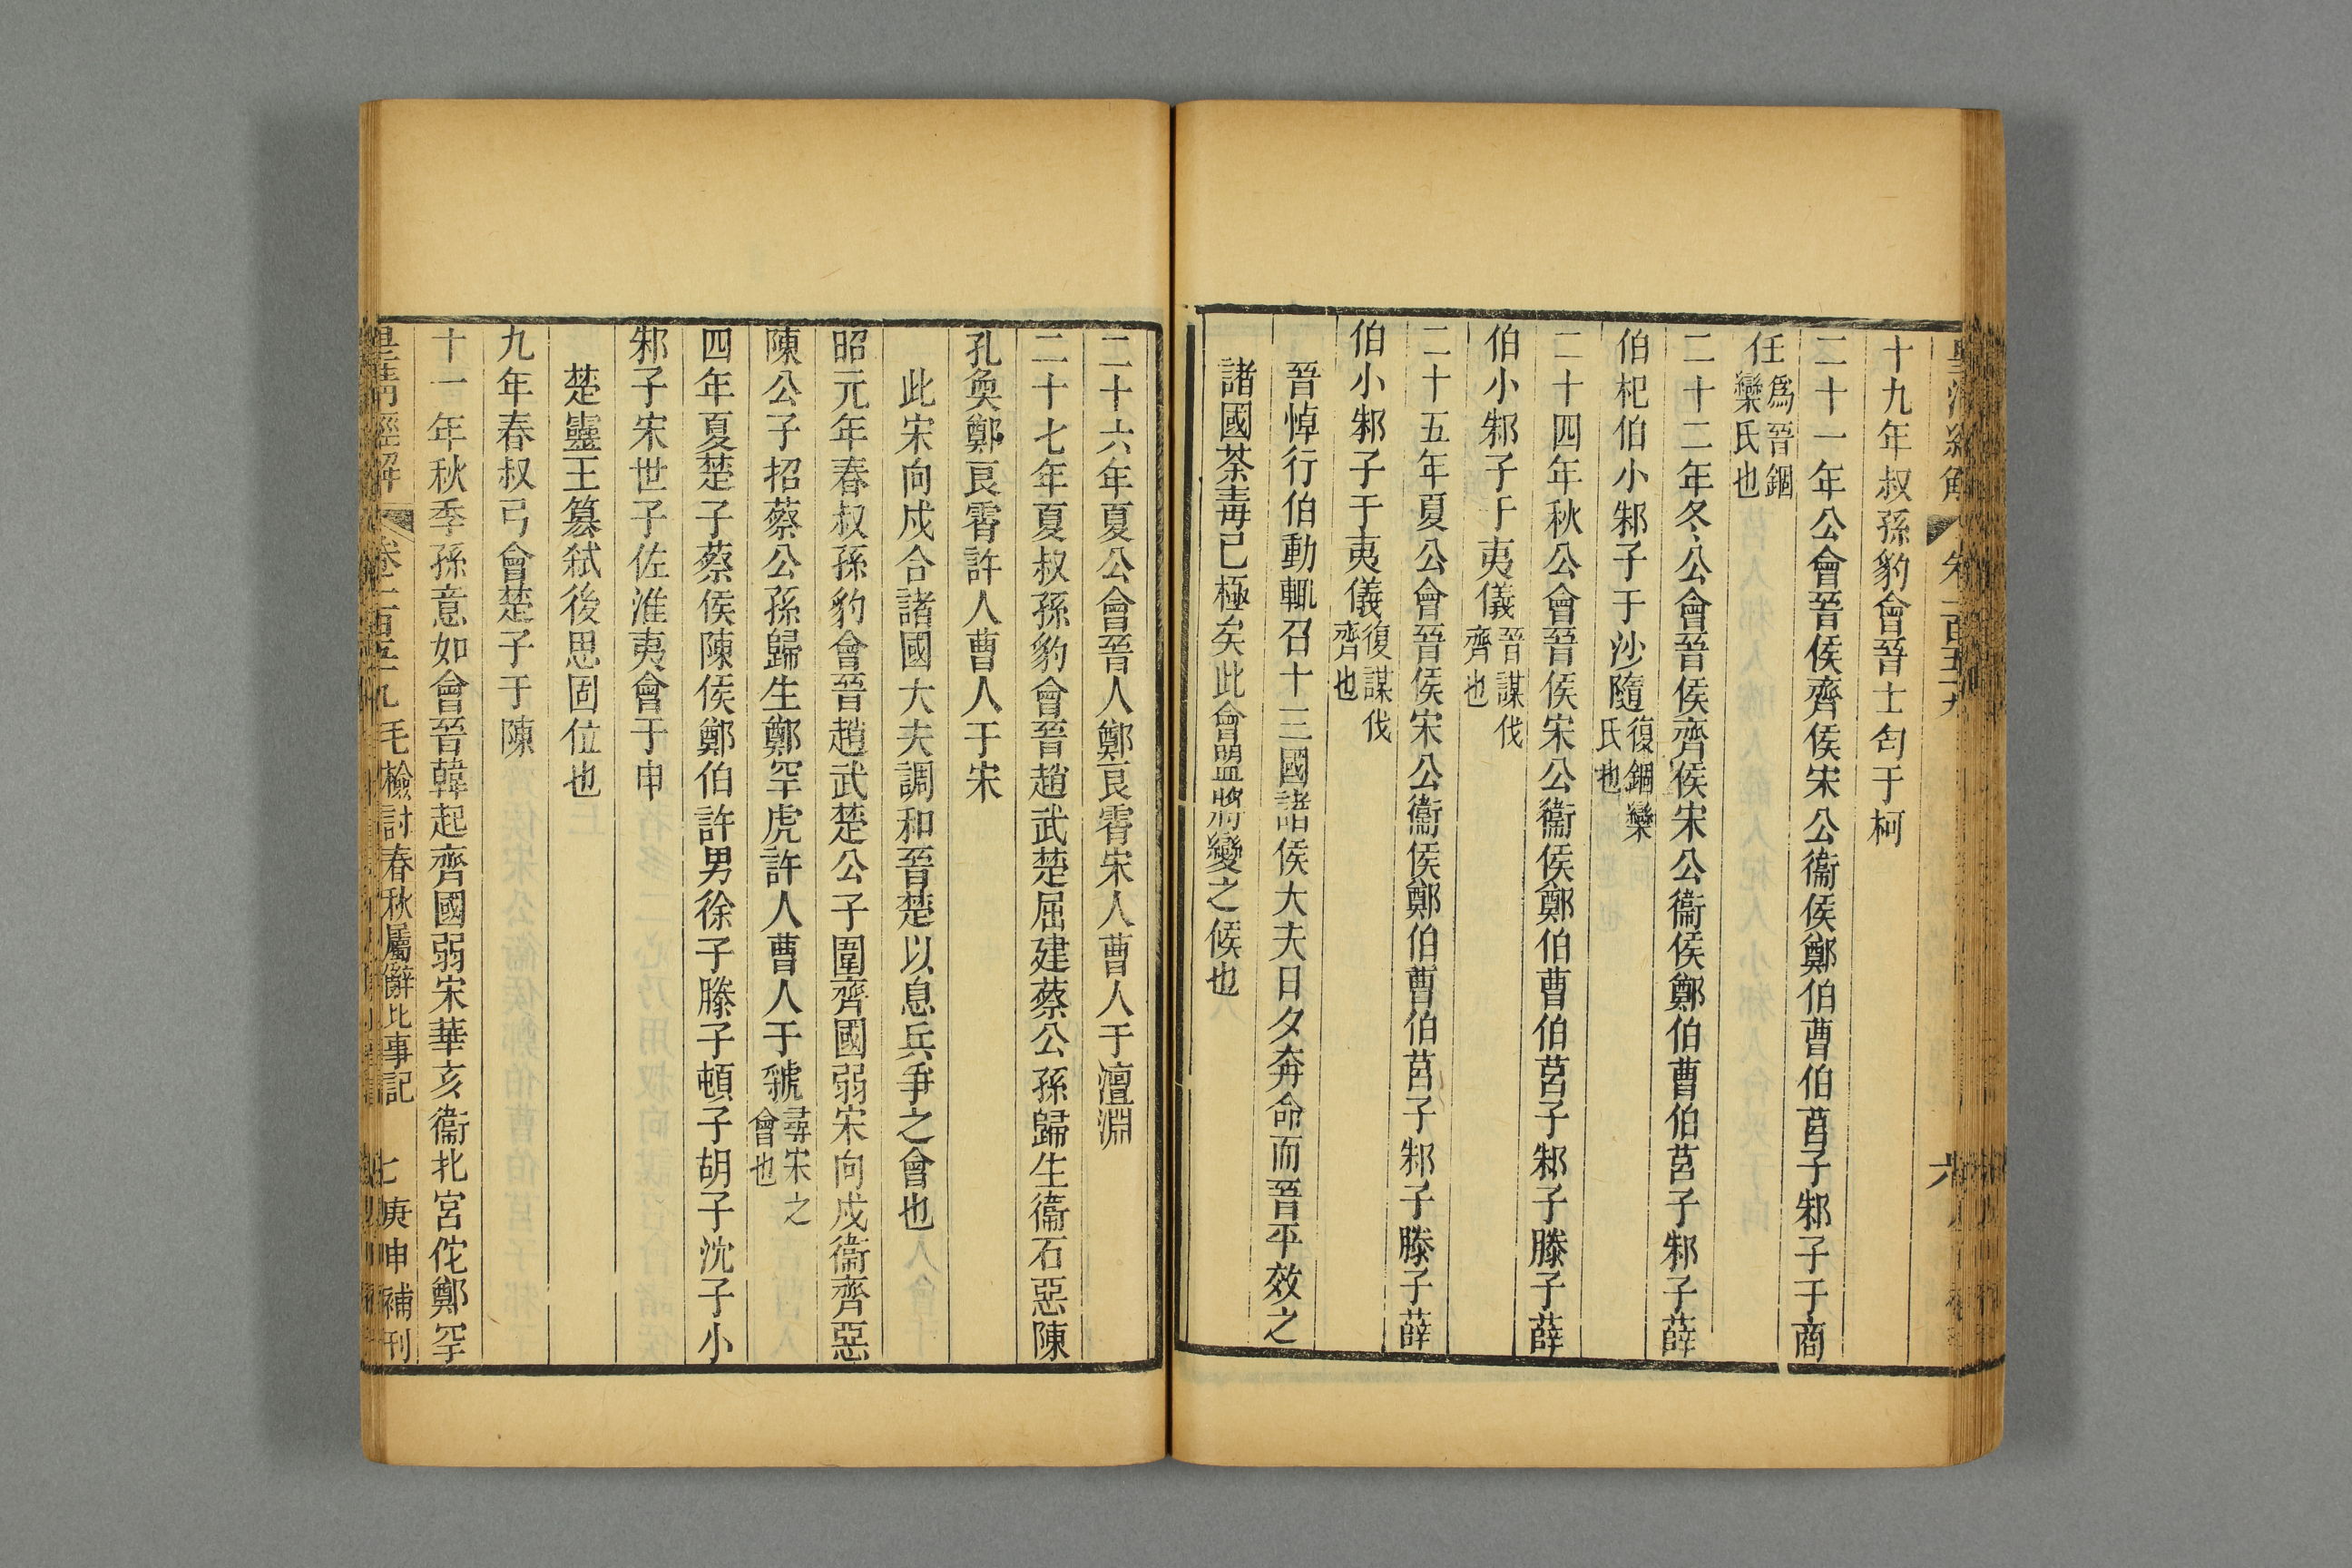 十九年叔孫豹會晉士匄于柯
二十一年公會晉侯齊侯宋公衞侯鄭伯曹伯莒子邾子于商
任爲晉錮欒氏也
二十二年冬公會晉侯齊侯宋公衞侯鄭伯曹伯莒子邾子薛
伯杞伯小邾子于沙隨復錮欒氏也
二十四年秋公會晉侯宋公衞侯鄭伯曹伯莒子邾子滕子薛
伯小邾子于夷儀晉謀伐齊也
二十五年夏公會晉侯宋公衞侯鄭伯曹伯莒子邾子滕子薛
伯小邾子于夷儀復謀伐齊也
晉悼行伯動輒召十三國諸侯大夫日夕奔命而晉平效之
諸國荼毒已極矣此會盟將變之候也
二十六年夏公會晉人鄭良霄宋人曹人于澶淵
二十七年夏叔孫豹會晉趙武楚屈建蔡公孫歸生衞石惡陳
孔奐鄭良霄許人曹人于宋
此宋向戍合諸國大夫調和晉楚以息兵爭之會也
昭元年春叔孫豹會晉趙武楚公子圍齊國弱宋向戍衞齊惡
陳公子招蔡公孫歸生鄭罕虎許人曹人于虢尋宋之會也
四年夏楚子蔡侯陳侯鄭伯許男徐子滕子頓子胡子沈子小
邾子宋世子佐淮夷會于申
楚靈王篡弑後思固位也
九年春叔弓會楚子于陳
十一年秋季孫意如會晉韓起齊國弱宋華亥衞北宮佗鄭罕
皇清經解 卷一百五十九 毛檢討春秋屬辭比事記 七 庚申補刊